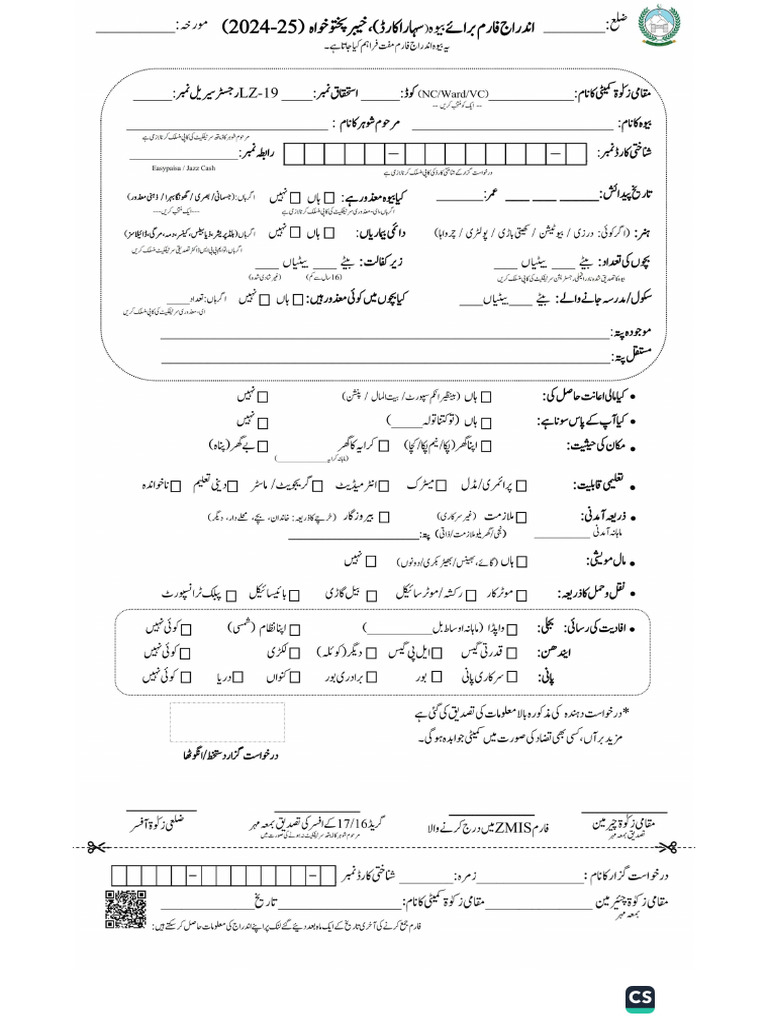 ضلع: ____________ اندراج فارم برائے بیوہ (سہارا کارڈ)، خیبر پختونخواہ (2024-25) مورخہ: ____________
یہ بیوہ اندراج فارم مفت فراہم کیا جاتا ہے۔
مقامی زکوٰۃ کمیٹی کا نام: ____________ (NC/Ward/VC) کوڈ: _____ استحقاق نمبر: _____ LZ-19 رجسٹر سیریل نمبر: _____
-- ایک کو منتخب کریں --
بیوہ کا نام: ____________ مرحوم شوہر کا نام : ____________
شناختی کارڈ نمبر: رابطہ نمبر: ____________
درخواست گزار کے شناختی کارڈ کی کاپی منسلک کرنا لازمی ہے
Easypaisa / Jazz Cash
تاریخ پیدائش: ____ ____ ____ عمر: ____ کیا بیوہ معذور ہے: ہاں نہیں اگر ہاں: (جسمانی / بصری / گونگا بہرا / ذہنی معذور)
اگر ہاں، معذوری سرٹیفکیٹ کی کاپی منسلک کرنا لازمی ہے ---ایک منتخب کریں---
ہنر: (اگر کوئی: درزی / بیوٹیشن / کھیتی باڑی / پولٹری / چرواہا) دائمی بیماریاں: ہاں نہیں اگر ہاں: (بلڈ پریشر، ذیابیطس، کینسر، دمہ، مرگی، ڈائیلاسز)
بچوں کی تعداد: بیٹے ____ بیٹیاں ____ زیر کفالت: بیٹے ____ بیٹیاں ____
(16 سال سے کم) (غیر شادی شدہ)
سکول/مدرسہ جانے والے: بیٹے ____ بیٹیاں ____ کیا بچوں میں کوئی معذور ہیں: ہاں نہیں اگر ہاں: تعداد ____
موجودہ پتہ: ____________
مستقل پتہ: ____________
• کیا مالی اعانت حاصل کی: ہاں (بینظیر انکم سپورٹ / بیت المال / پنشن) نہیں
• کیا آپ کے پاس سونا ہے: ہاں (تو کتنا تولہ ______) نہیں
• مکان کی حیثیت: اپنا گھر (پکا/نیم پکا/کچا) کرایہ کا گھر بے گھر (پناہ)
(ماہانہ کرایہ ____________)
• تعلیمی قابلیت: پرائمری/مڈل میٹرک انٹرمیڈیٹ گریجویٹ/ ماسٹر دینی تعلیم ناخواندہ
• ذریعہ آمدنی: ملازمت (غیر سرکاری) بیروزگار (خرچے کا ذریعہ: خاندان، بچے، محلے دار، دیگر)
ماہانہ آمدنی ____________ (نجی/گھریلو ملازمت/ذاتی) پتہ: ____________
• مال مویشی: ہاں (گائے، بھینس/بھیڑ بکری/دونوں) نہیں
• نقل و حمل کا ذریعہ: موٹر کار رکشہ/موٹر سائیکل بیل گاڑی بائیسائیکل پبلک ٹرانسپورٹ
• افادیت کی رسائی: بجلی: واپڈا (ماہانہ اوسط بل ____________) اپنا نظام (شمسی) کوئی نہیں
ایندھن: قدرتی گیس ایل پی گیس دیگر (کوئلہ) لکڑی کوئی نہیں
پانی: سرکاری پانی بور برادری بور کنواں دریا کوئی نہیں
*درخواست دہندہ کی مذکورہ بالا معلومات کی تصدیق کی گئی ہے
مزید برآں، کسی بھی تضاد کی صورت میں کمیٹی جوابدہ ہوگی۔
درخواست گزار دستخط/انگوٹھا
مقامی زکوٰۃ چیرمین فارم ZMIS میں درج کرنے والا گریڈ 17/16 کے افسر کی تصدیق بمعہ مہر ضلعی زکوٰۃ آفسر
تصدیق بمعہ مہر
درخواست گزار کا نام: ____________ زمرہ: ________ شناختی کارڈ نمبر
مقامی زکوٰۃ چیئرمین ____________ مقامی زکوٰۃ کمیٹی کا نام: ____________ تاریخ ____________
بمعہ مہر
فارم جمع کرنے کی آخری تاریخ کے ایک ماہ بعد دیئے گئے لنک پر اپنے اندراج کی معلومات حاصل کر سکتے ہیں:
CS